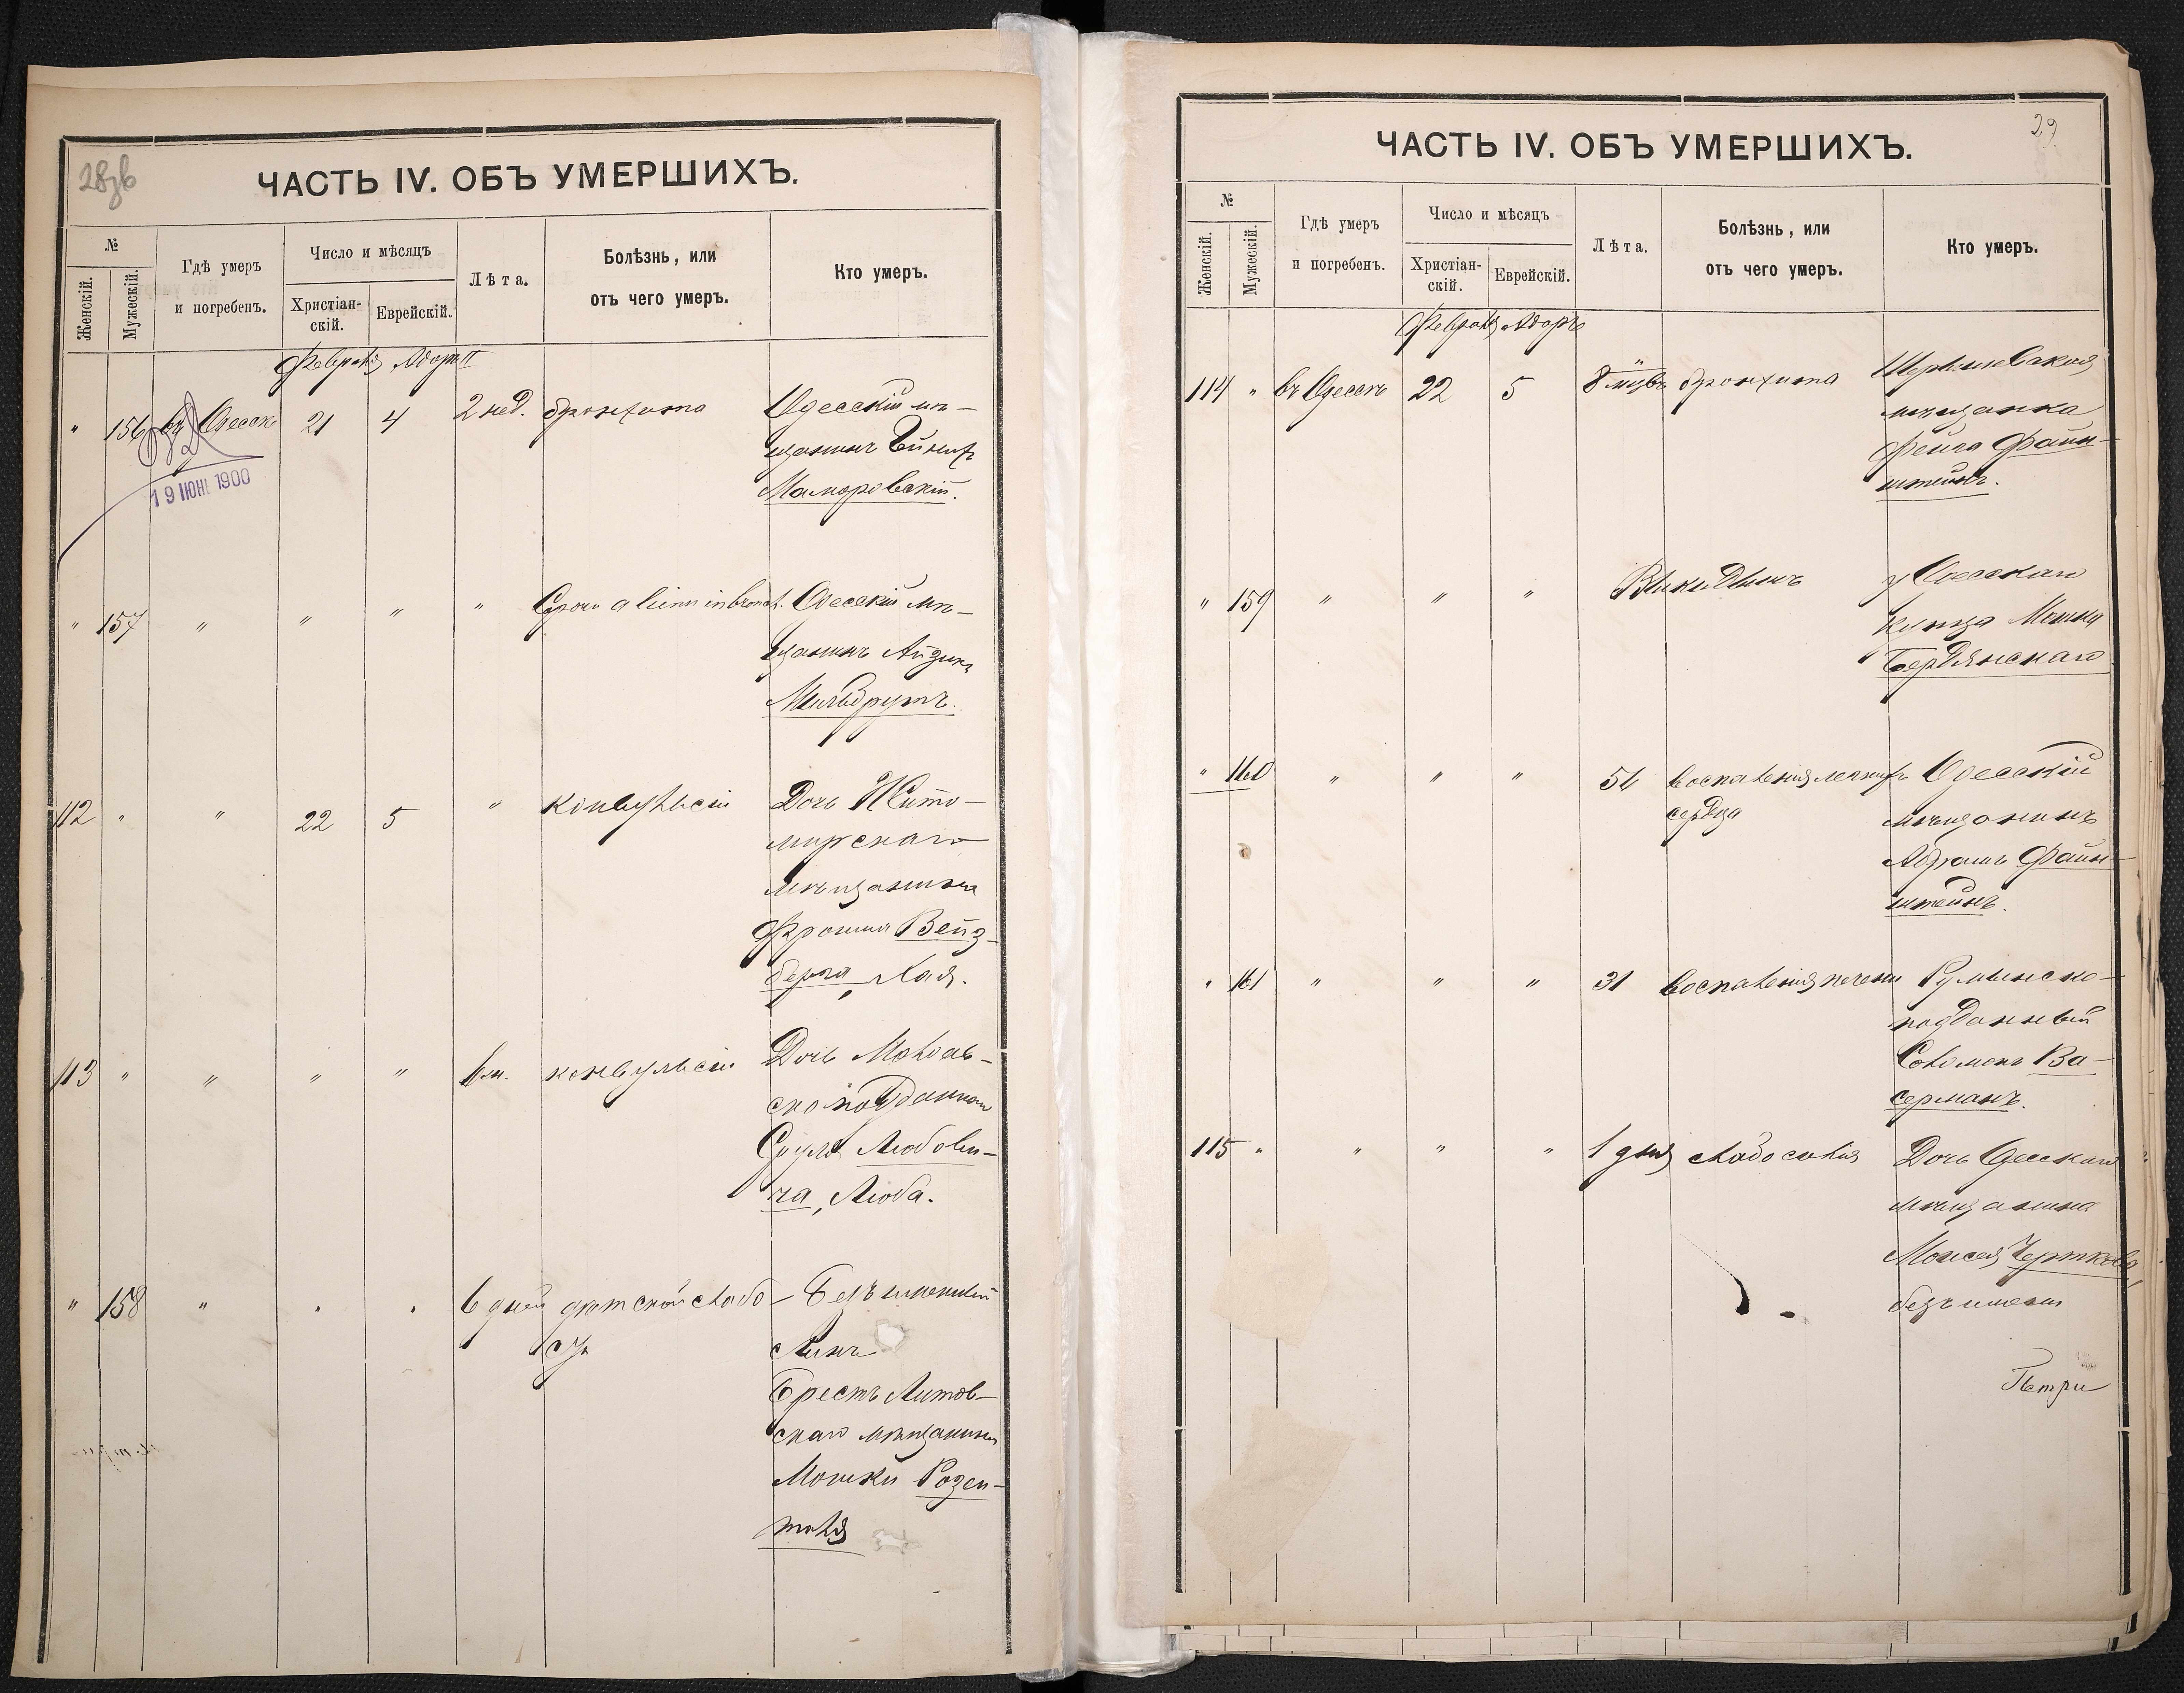 28зв
ЧАСТЬ IV. ОБЪ УМЕРШИХЪ.
№
Женскій.
Мужескій.
Гдѣ умеръ
и погребенъ.
Число и мѣсяцъ
Христіан-
скій.
Еврейскій.
Лѣта.
Болѣзнь, или
отъ чего умеръ.
Кто умеръ.
Февраля Адоръ II
" 156 въ Одессѣ 21 4 2 нед. бронхита Одесскій мѣ-
щанинъ
Маморовскій.
19 ІЮН 1900
" 157 " " " " Одесскій мѣ-
щанинъ Айзикъ
Мильдрутъ.
112 " " 22 5 " конвульсіи Дочь Жито-
мирскаго
мѣщанина
Фроима Вейз-
берга, Хая.
113 " " " " 6 м. конвульсіи Дочь
подданнаго
Сруля Любови-
ча, Люба.
" 158 " " " 6 дней дѣтской слабо-
сти
Безъименный
сынъ
Брестъ Литов-
скаго мѣщанина
Мошки Розен-
таля
29
ЧАСТЬ IV. ОБЪ УМЕРШИХЪ.
№
Женскій.
Мужескій.
Гдѣ умеръ
и погребенъ.
Число и мѣсяцъ
Христіан-
скій.
Еврейскій.
Лѣта.
Болѣзнь, или
отъ чего умеръ.
Кто умеръ.
Февраля Адоръ
II
114 " въ Одессѣ 22 5 8 мцвъ бронхита
мѣщанка
Фейга Файн-
штейнъ.
" 159 " " " Выкидышъ у Одесскаго
купца Мошки
Бердянскаго
" 160 " " " воспаленія легкихъ Одесскій
сердца
мѣщанинъ
Абрамъ Файн-
штейнъ.
" 161 " " " 31 воспаленія печени Румынско-
подданный
Соломонъ Ва-
серманъ.
115 " " " " 1 дня слабосилія Дочь Одесскаго
мѣщанина
Моисея Черткова
безъ имени